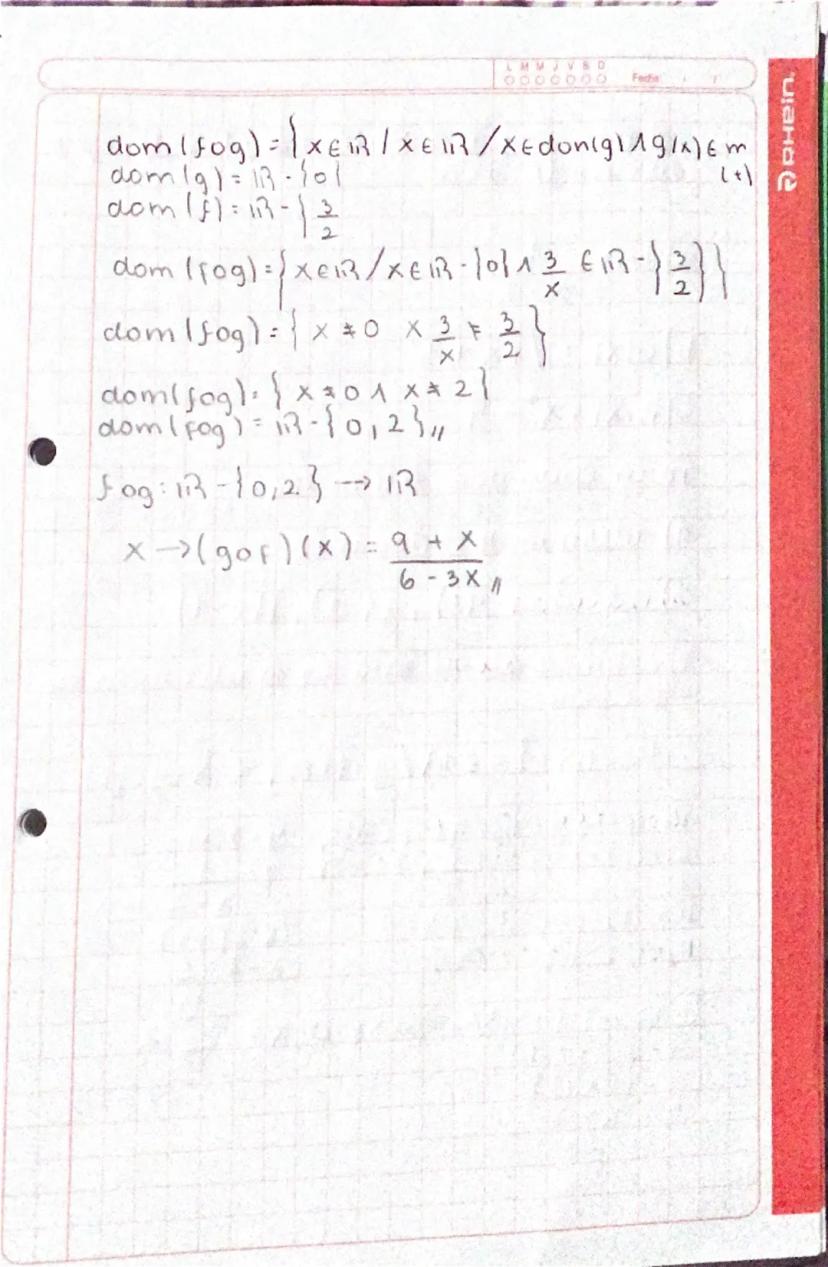 L M M J V S D
Fecha:
RHEIN.
dom(fog)={x∈IR/x∈IR/x∈don(g)∧g(x)∈m
(t)
dom(g)=IR-{0}
dom(f)=IR-{3/2
dom(fog)={x∈IR/x∈IR-{0}∧3/x∈IR-{3/2}}
dom(fog)={x≠0 x 3/x≠3/2}
dom(fog)={x≠0∧x≠2}
dom(fog)=IR-{0,2}//
fog:IR-{0,2}→IR
x→(gof)(x)=9+x/6-3x//